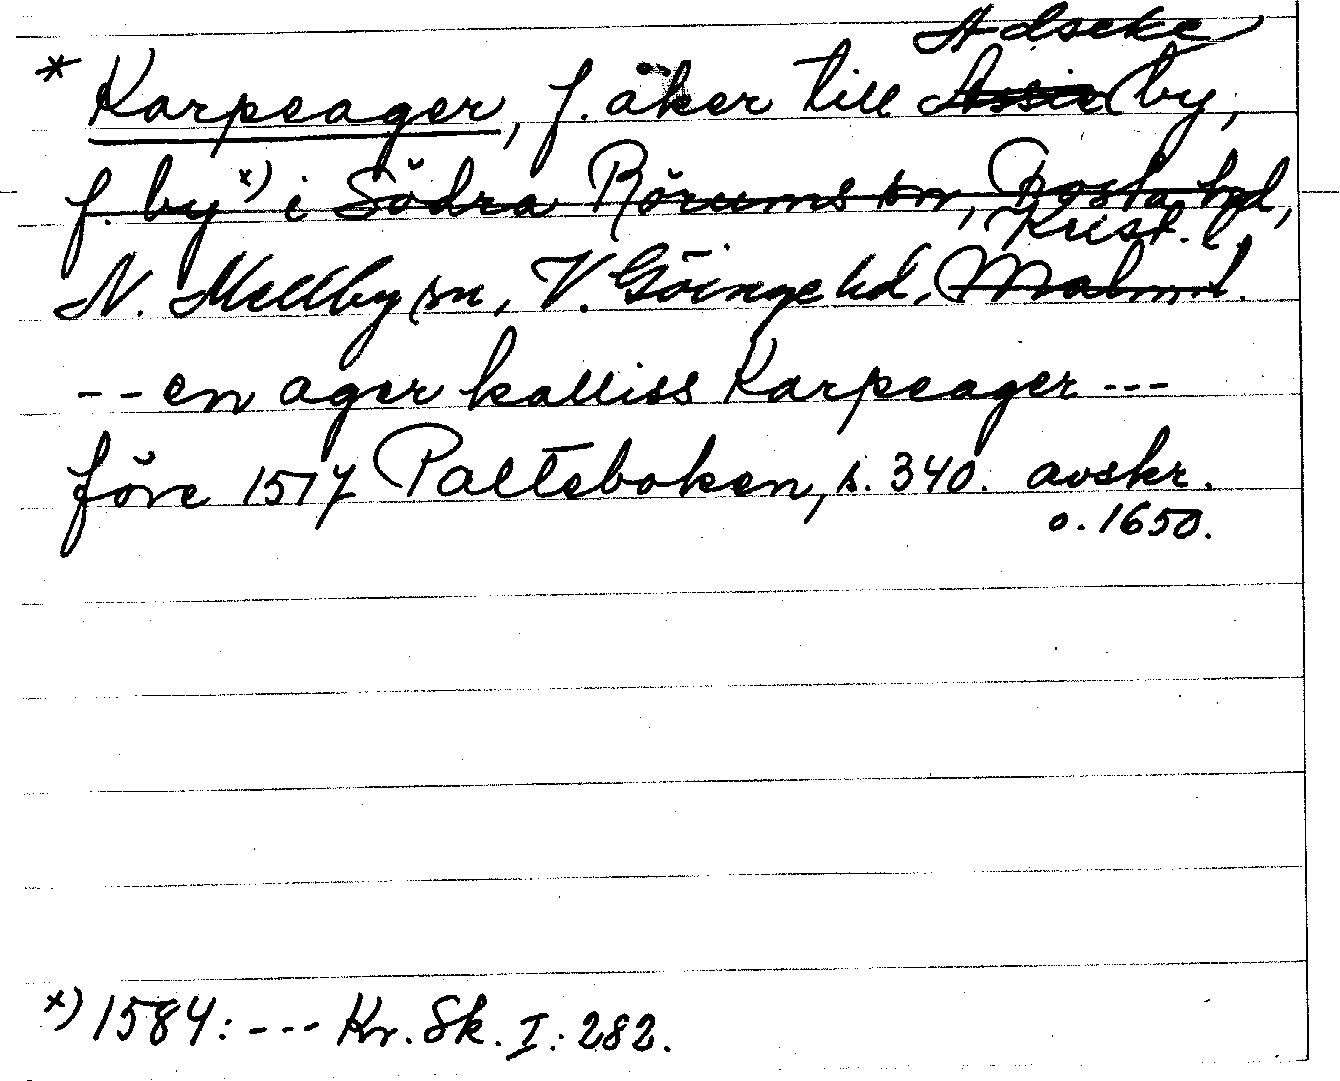 Adseke
* Karpeager, f. åker till Assie by,
f. by x) i Södra Rörums sn, Frosta hd,
Krist. l.
N. Mellby sn, V. Göinge hd, Malm. l.
-- en ager kalliss Karpeager ---
före 1517 Palteboken, s. 340. avskr.
o. 1650.
x) 1584: --- Kr. Sk. I: 282.